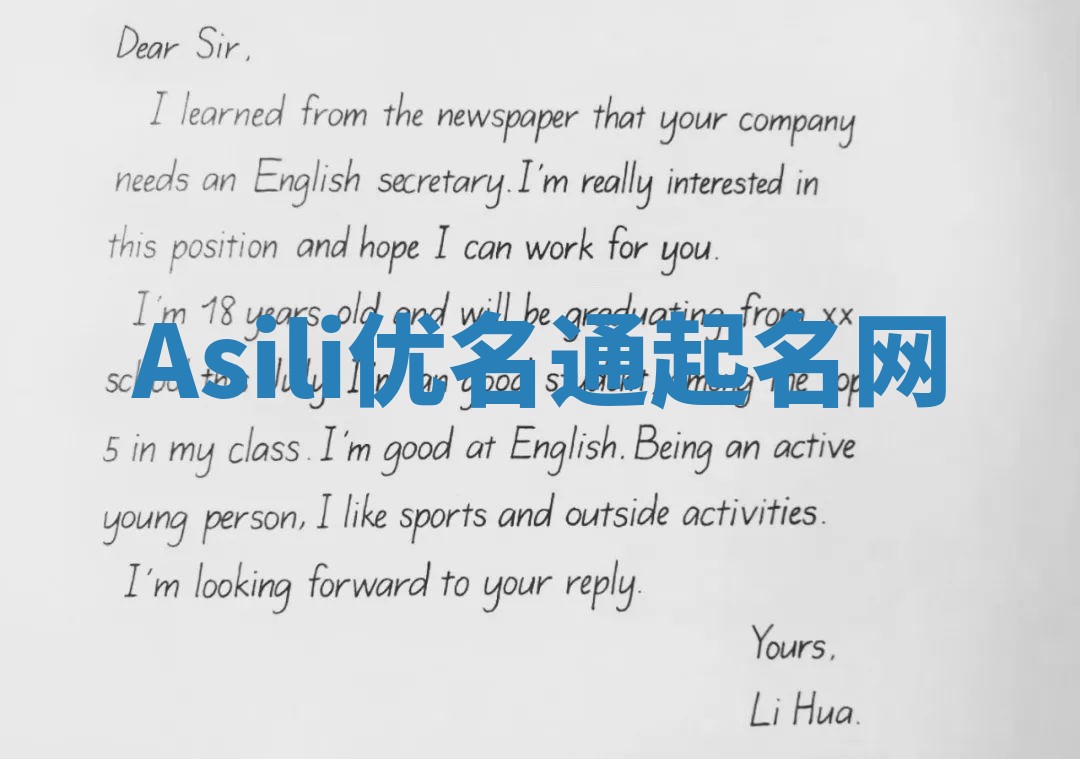 Dear Sir,
I learned from the newspaper that your company
needs an English secretary. I'm really interested in
this position and hope I can work for you.
I'm 18 years old and will be graduating from xx
Asili优名通起名网
July I'm an good student, among the top
5 in my class. I'm good at English. Being an active
young person, I like sports and outside activities.
I'm looking forward to your reply.
Yours,
Li Hua.